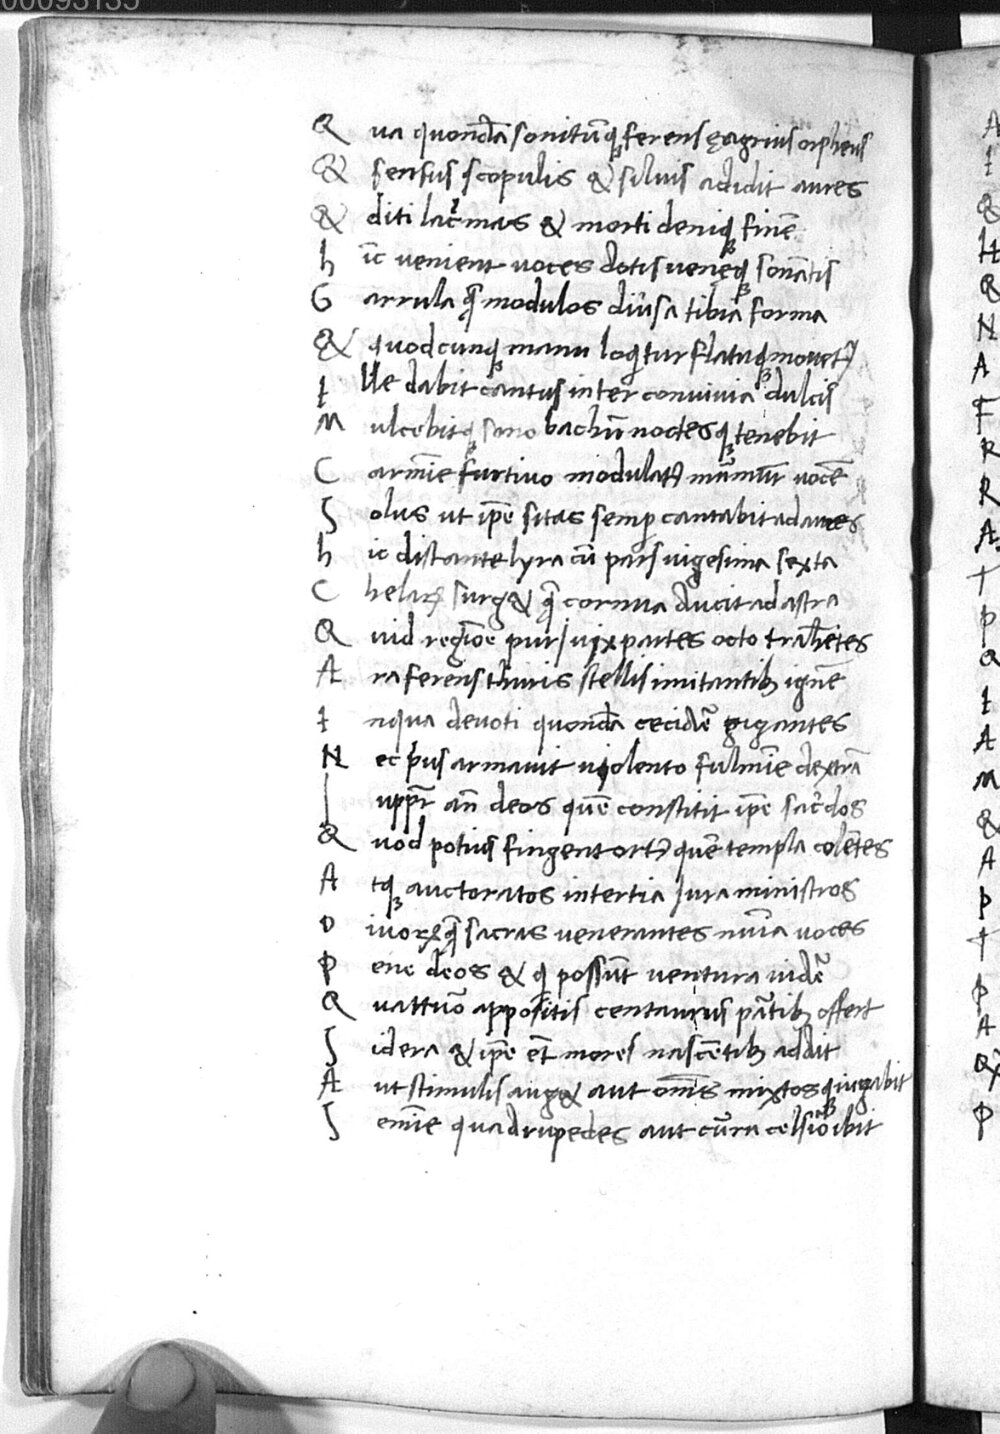 00093135
Q va quondã sonitũqꝫ ferens ęagrius orpheus
& sensus scopulis & siluis addidit aures
& diti lacͥmas & morti deniqꝫ finẽ
h ĩc venient voces dotisueneqꝫ sonãtis
G arrula q̃ modulos diũsa tibia forma
& quodcunqꝫ manu loqͥtur flatuqꝫ mouetꝰ
I lle dabit cantus inter conuiuia dulcis
M ulcebitqꝫ sono bachũ noctesqꝫ tenebit
C armĩe furtivo modulatꝰ murmur vocẽ
S olus ut ip̃e sitas semp̱ cantabit ad aures
h ic distante lyra cũ pars uigesima sexta
C helaꝝ surg& q̃ cornua ducit ad astra
Q uid regĩoe pur uix partes octo trahẽtes
A ra ferens thuris stellis imitantibꝫ ignẽ
I nqua devoti quondã cecidẽ gigantes
N ec pͥus armauit uiolento fulmĩe dextrã
I uppͥr añ deos quẽ constitit ip̃e sacͬdos
Q vod potius fingent ortꝰ quẽ templa colẽtes
A tqꝫ auctoratos intertia jura ministros
D ivoꝝ q̃ sacras venerantes numĩa voces
P ene deos & qͥ possũt ventura uidẽ
Q vattuõ appositis centaurus pãtibꝫ offert
S idera & ip̃e et̃ mores nascẽtibꝫ addit
A ut stimulis aug& aut om̃is mixtosqꝫ iugabit
S emĩe quadrupedes aut cũra celsiõ ibit
A
I
&
H
Q
N
A
F
R
R
A
T
P
Q
I
A
M
&
A
P
T
P
A
Q
P